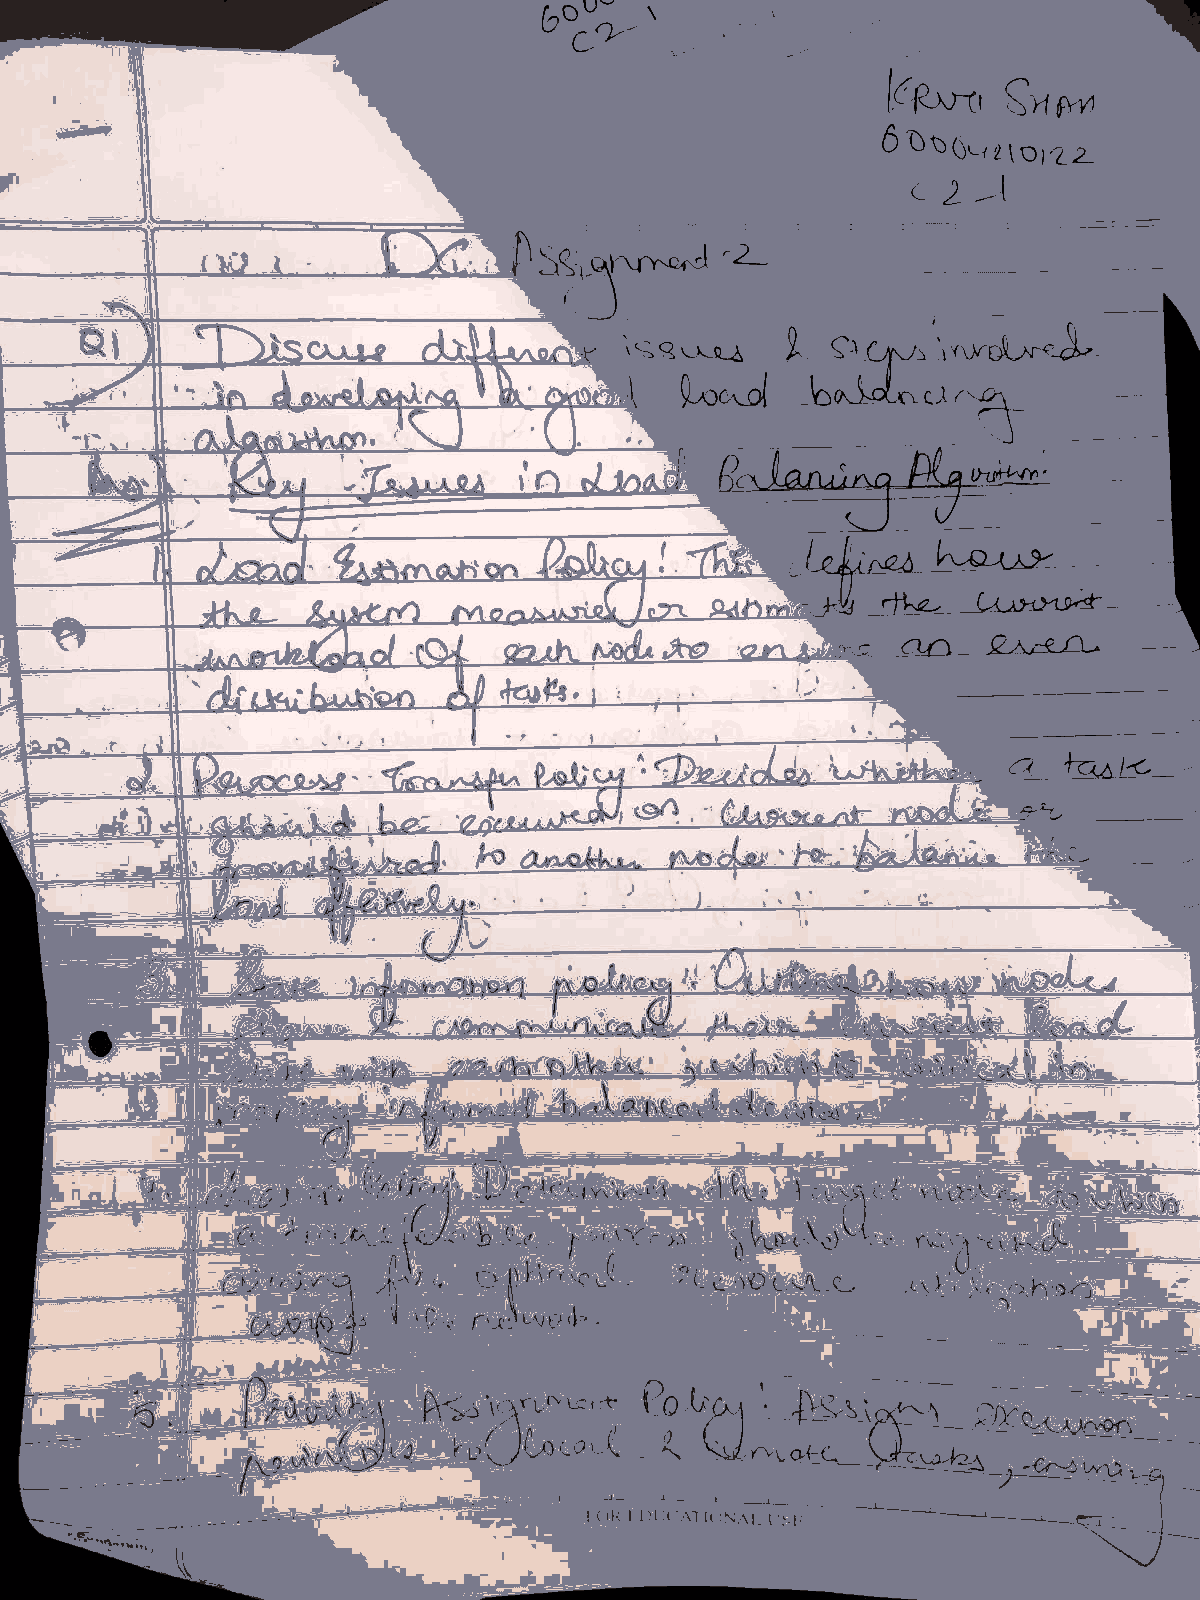 6000
C2-1
KRUTI SHAH
60004210122
C2-1
DC Assignment-2
Q1) Discuss different issues & steps involved
in developing a good load balancing
algorithm.
Key Issues in Load Balancing Algorithm:
1. Load Estimation Policy: This defines how
the system measures or estimates the current
workload of each node to ensure an even
distribution of tasks.
2. Process Transfer Policy: Decides whether a task
should be executed on current node or
transferred to another node to balance the
load effectively.
3. State information policy: Outlines how nodes
share & communicate their current load
with each other which is critical to
making informed balanced
Policy: Determines the target node to which
a transferable process should be migrated
aiming for optimal resource utilization
across the network.
5. Priority Assignment Policy: Assigns execution
priorities to local & remote tasks, ensuring
FOR EDUCATIONAL USE